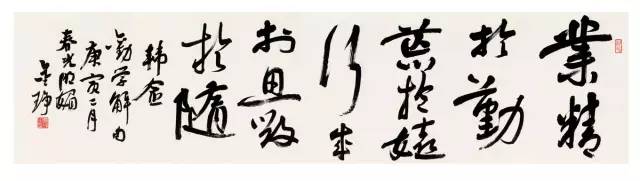 業精
於勤
荒於嬉
行成
於思毀
於隨
韓愈
勸学解句
庚寅二月
春光明媚